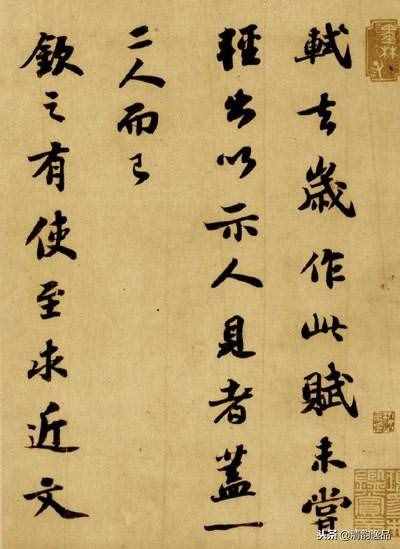 軾去歲作此賦未嘗
輕出以示人見者蓋一
二人而已
欽之有使至求近文
头条@清韵逸品